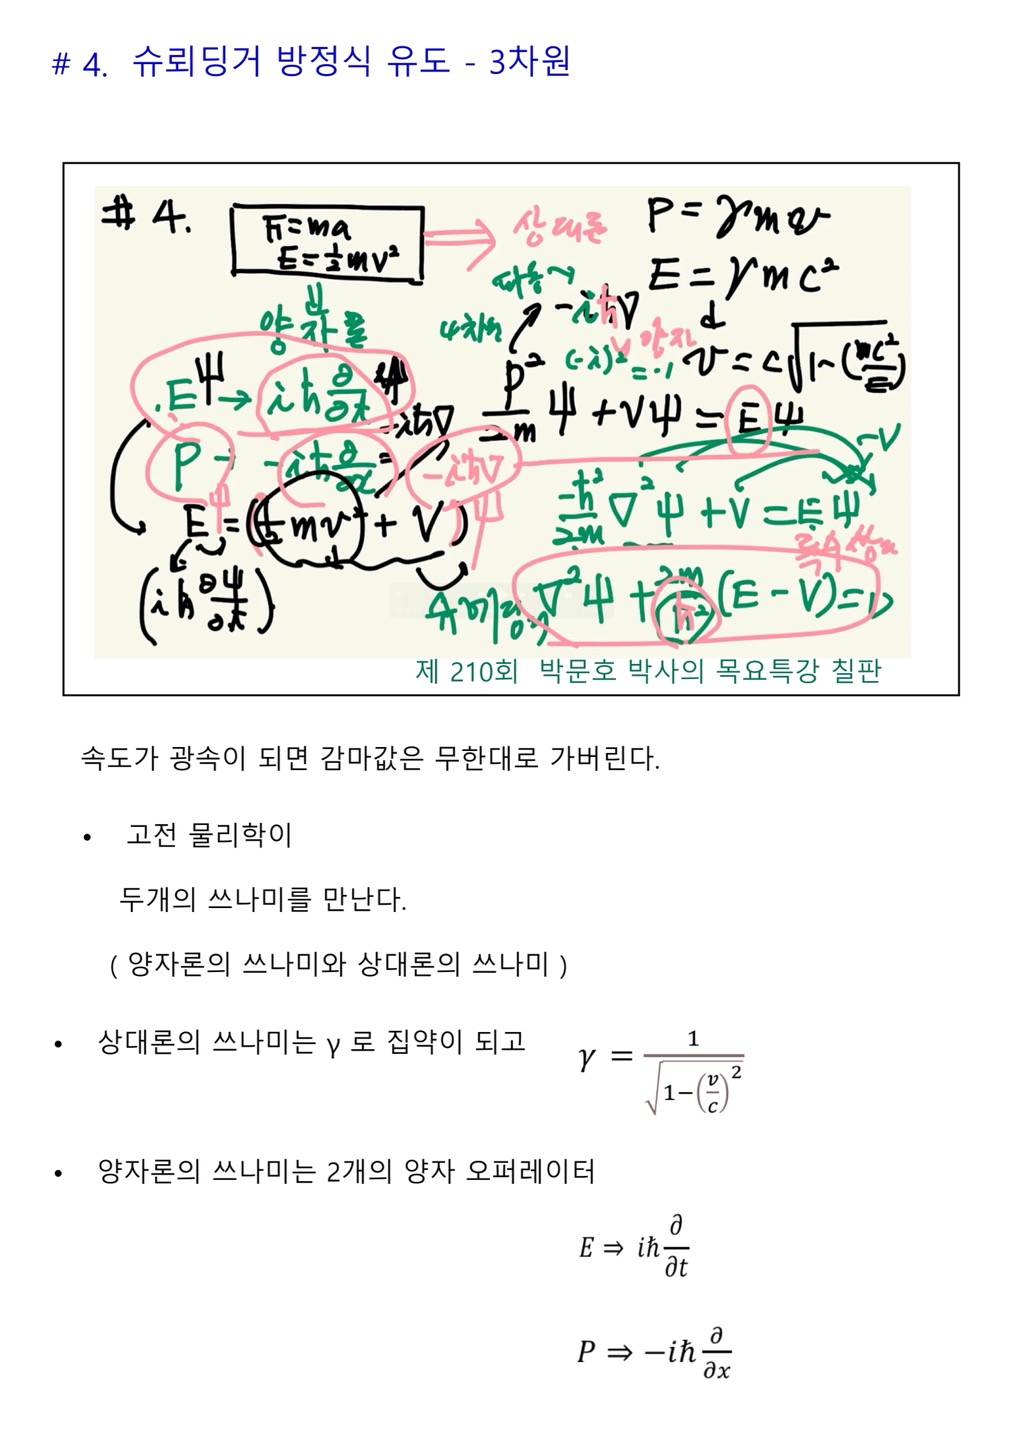 # 4. 슈뢰딩거 방정식 유도 - 3차원
# 4.
F=ma
E=½mv²
상대론
P=γmv
E=γmc²
양자론
4차원
-iħ∇
양자
(-i)²=-1
v=c√1-(mc²/E)²
Eψ→iħ∂/∂t ψ
P→-iħ∂/∂x=-iħ∇
-iħ∇
P²/2m ψ+Vψ=Eψ
Eψ=(½mv²+V)ψ
(iħ∂ψ/∂t)
-ħ²/2m ∇²ψ+V=Eψ
-V
∇²ψ+2m/ħ²(E-V)=0
제 210회 박문호 박사의 목요특강 칠판
속도가 광속이 되면 감마값은 무한대로 가버린다.
• 고전 물리학이
두개의 쓰나미를 만난다.
( 양자론의 쓰나미와 상대론의 쓰나미 )
• 상대론의 쓰나미는 γ 로 집약이 되고 γ = 1/√1−(v/c)²
• 양자론의 쓰나미는 2개의 양자 오퍼레이터
E ⇒ iħ ∂/∂t
P ⇒ −iħ ∂/∂x